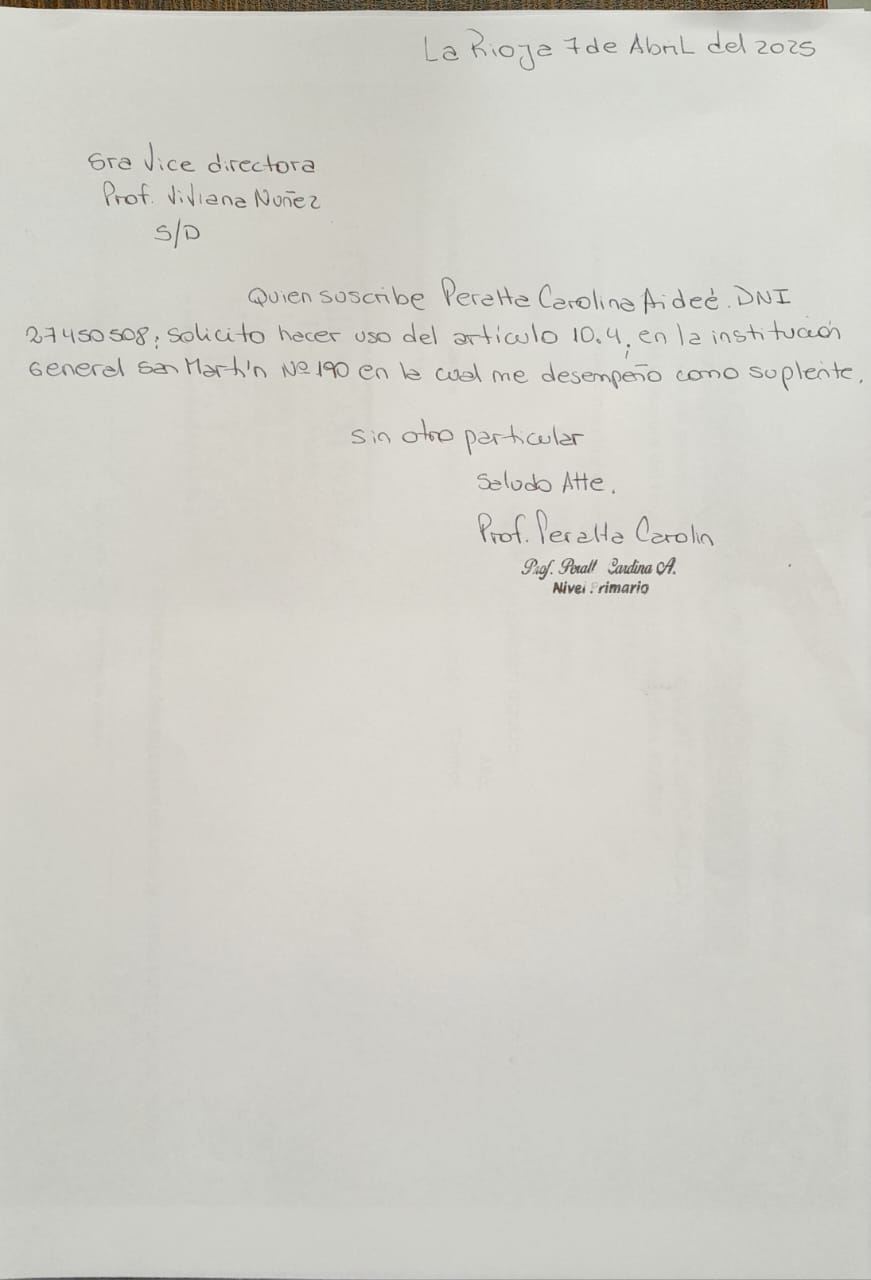 La Rioja 7 de Abril del 2025
Sra Vice directora
Prof. Viviana Nuñez
S/D
Quien suscribe Peralta Carolina Aideé. DNI
27450508; solicito hacer uso del artículo 10.4, en la institución
General San Martín Nº 190 en la cual me desempeño como suplente.
Sin otro particular
Saludo Atte.
Prof. Peralta Carolin
Prof. Peralt Carolina A.
Nivel Primario